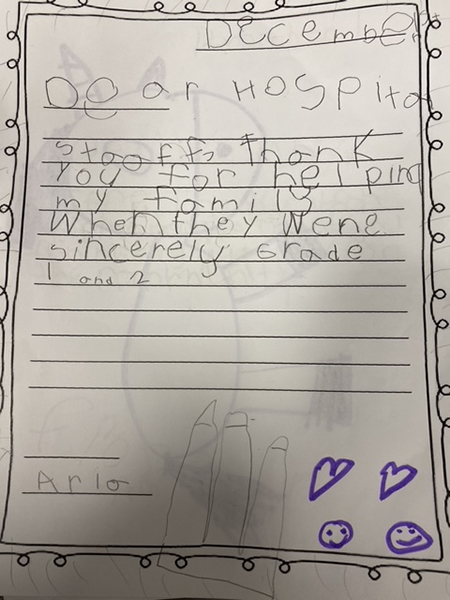 December
Dear HOSPital
Staaff, Thank
You for helping
my family
When they Wene
sincerely Grade
1 and 2
Arlo